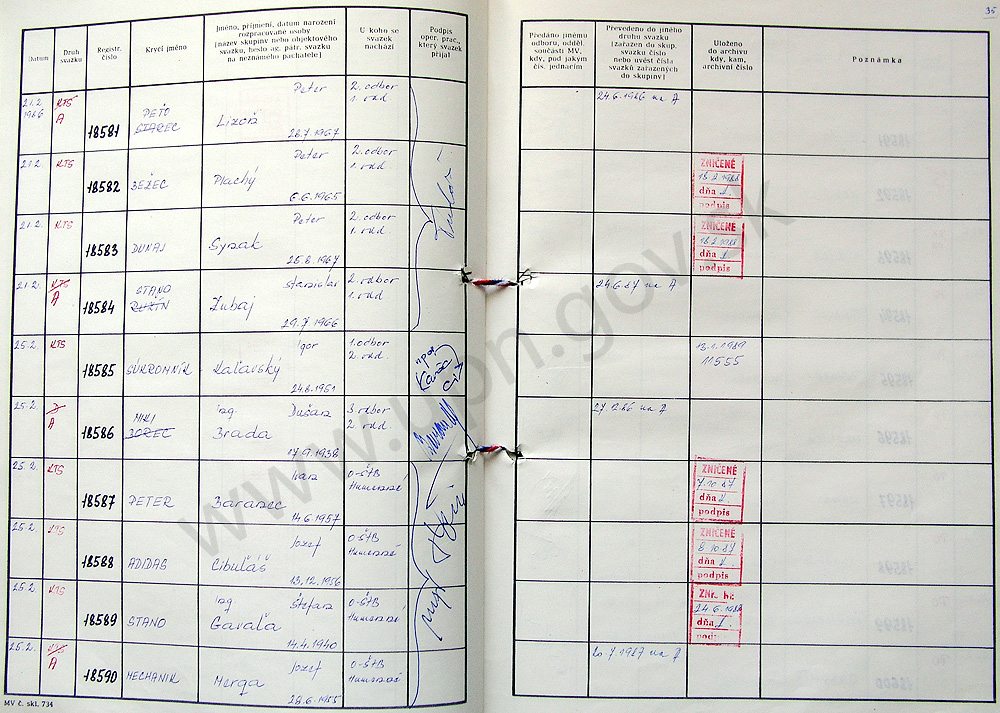 35
Datum
Druh svazku
Registr. číslo
Krycí jméno
Jméno, příjmení, datum narození
rozpracované osoby
[název skupiny nebo objektového
svazku, heslo ag. pátr. svazku
na neznámého pachatele]
U koho se
svazek
nachází
Podpis
oper. prac.,
který svazek
přijal
Předáno jinému
odboru, odděl.
součásti MV,
kdy, pod jakým
čís. jednacím
Převedeno do jiného
druhu svazku
[zařazen do skup.
svazku číslo
nebo uvést čísla
svazků zařazených
do skupiny]
Uloženo
do archivu
kdy, kam,
archivní číslo
Poznámka
21.2. 1986 KTS A 18581 PEŤO STAREC Peter
2. odbor
1. odd
28.7.1967
24.6.1986 na A
21.2. KTS 18582 BEŽEC Peter
Plachý
6.6.1965
2. odbor
1. odd
ZNIČENÉ
dňa
podpis
21.2. KTS 18583 DUNAJ Peter
25.8.1967
2. odbor
1. odd
ZNIČENÉ
dňa
podpis
21.2. KTS A 18584 STANO Stanislav
Zubaj
29.7.1966
2. odbor
1. odd
24.6.87 na A
25.2. KTS 18585 SÚKROMNÍK Igor
24.8.1951
1. odbor
2. odd.
13.1.1989
11555
25.2. A 18586 MIKI BOREC Ing. Dušan
Brada
17.9.1938
3 odbor
2. odd.
25.2. KTS 18587 PETER Ivan
Baranec
14.6.1957
O-ŠTB
Humenné
ZNIČENÉ
7.10.87
dňa
podpis
25.2. KTS 18588 ADIDAS Jozef
Cibuľáš
13.12.1956
O-ŠTB
Humenné
ZNIČENÉ
8.10.87
dňa
podpis
25.2. KTS 18589 STANO Ing. Štefan
Gavaľa
14.4.1940
O-ŠTB
Humenné
dňa
25.2. KTS A 18590 MECHANIK Jozef
Merga
28.6.1955
O-ŠTB
Humenné
20.7.1987 na A
MV č. skl. 734
www.upn.gov.sk